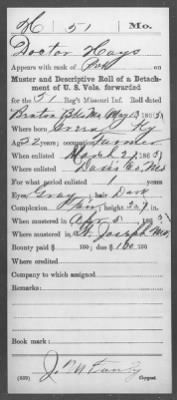 H 51 Mo.
Doctor Hays
Appears with rank of Pvt on
Muster and Descriptive Roll of a Detach-
ment of U. S. Vols. forwarded
for the 51 Reg't Missouri Inf. Roll dated
Benton Bks Mo May 13, 1865.
Where born Green Ky
Age 32 years; occupation Farmer
When enlisted March 27, 1865
Where enlisted Davis Co, Mo
For what period enlisted 1 years
Eyes Gray; hair Dark
Complexion Fair; height ft. in.
When mustered in Apr 5, 1865
Where mustered in St. Joseph Mo,
Bounty paid $ 100; due $ 100
Where credited
Company to which assigned
Remarks:
Book mark:
(339) Copyist.